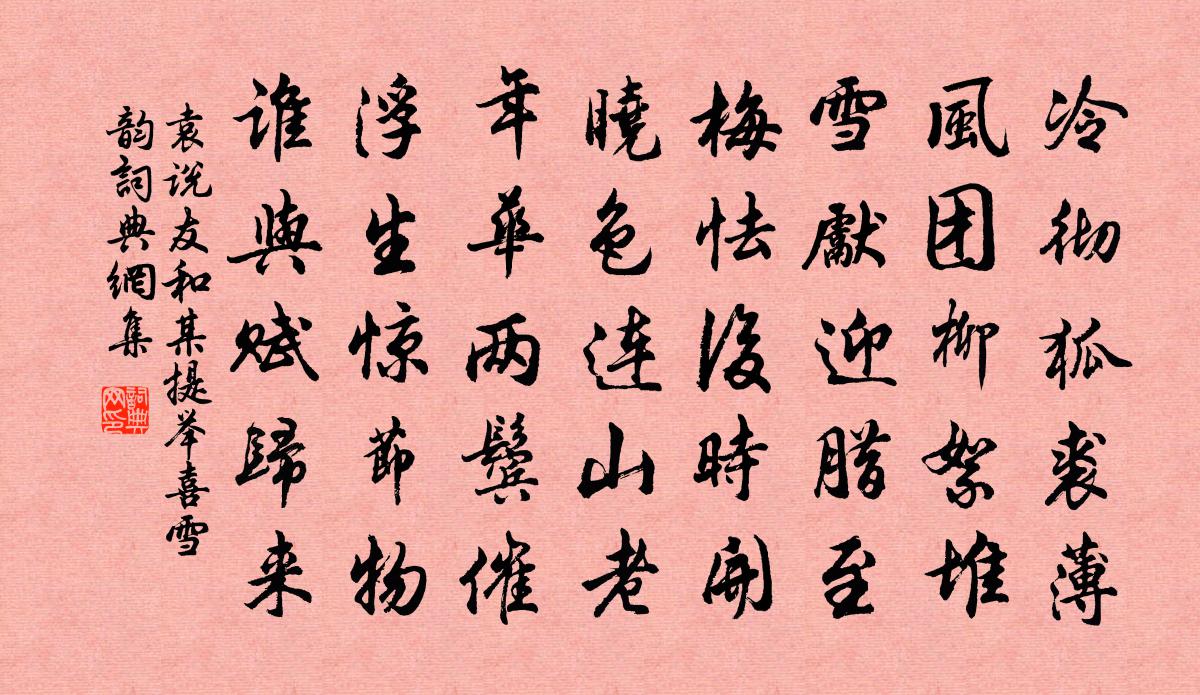 冷彻狐裘薄
風团柳絮堆
雪獻迎腊至
梅怯後時開
曉色連山老
年華两鬓催
浮生惊節物
谁與赋歸来
袁说友和某提举喜雪
韵詞典網集
詞典网印